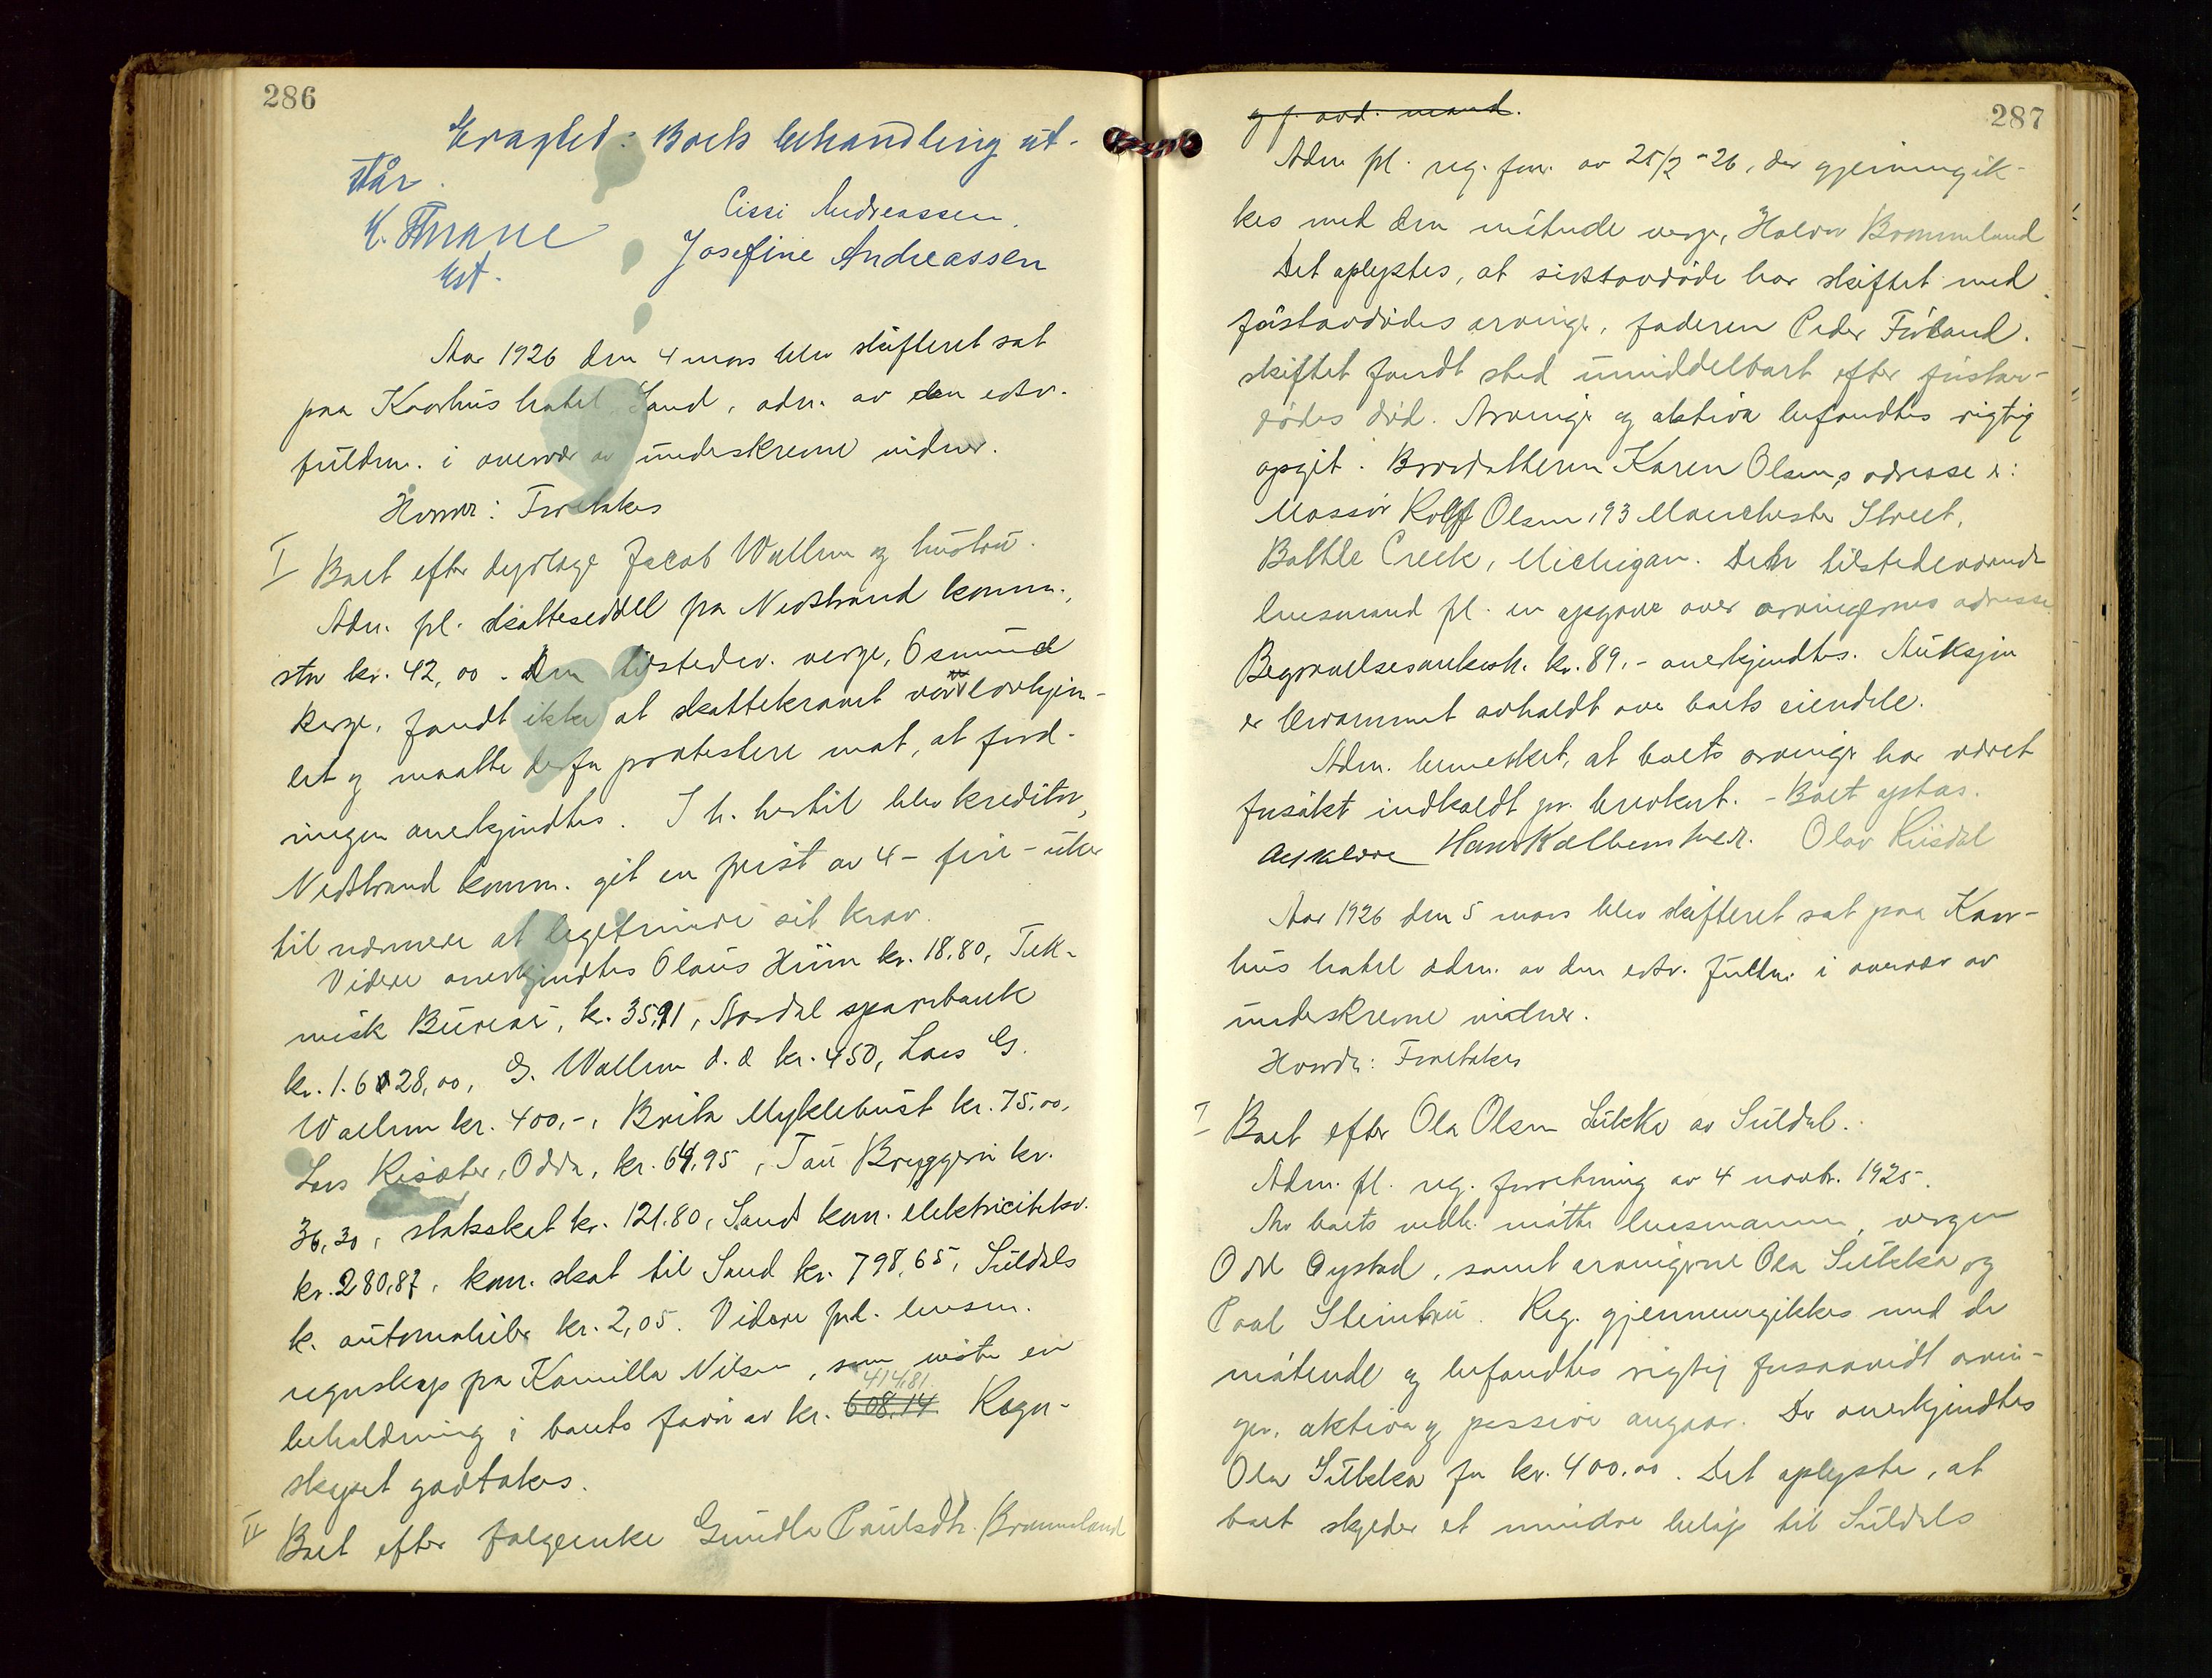 286
Eragtet: Boets behandling ut-
står.
K. Thrane
kst.
Cissi Andreassen.
Josefine Andreassen
Aar 1926 den 4 mars blev skifteret sat
paa Kaarhus hotel Sand, adm. av den edsv.
fuldm. i overvær av underskrevne vidner.
Hvorer: Foretakes
I Boet efter dyrlæge Jacob Wallum og hustru.
Adm. pl. skatteseddel fra Nedstrand komm.,
stor kr. 42,00. Den tilstedev. verge, Osmund
Berge, fandt ikke at skattekravet var lovhjem-
let og maatte derfor protestere mot, at ford-
ringen anerkjendtes. I h. hertil blev kreditor,
Nedstrand komm. git en frist av 4 - fire - uker
til nærmere at legetimere sit krav.
Videre anerkjendtes Olaus Hiim kr. 18.80, Tek-
nisk Bureau, kr. 35,91, Aardal sparebank
kr. 1.628,00, G. Wallum d. d kr. 450, Lars G.
Wallum kr. 400,-, Brita Myklebust kr. 75,00,
Lars Risæter, Odda, kr. 64,95, Tau Bryggeri kr.
36,30, statsskat kr. 121.80, Sand kom. elektricitetsv.
kr. 280,87, kom. skat til Sand kr. 798,65, Suldals
k. automobiler kr. 2,05. Videre frl. lensm.
regnskap fra Kamilla Nilsen, som viste en
414,81.
beholdning i boets favør av kr. 608,14. Regn-
skapet godtokes.
II Boet efter følgeenke Gundla Paulsdtr. Brommeland
287
og f. avd. mand.
Adm pl. reg. forr. av 25/2-26, der gjennemgik-
kes med den møtende verge, Halvor Brommeland
Det oplystes, at sidstavdøde har skiftet med
førstavdødes arvinge, faderen Peder Førland.
skiftet fandt sted umiddelbart efter førstav-
dødes død. Arvinger og aktiva befandtes rigtig
opgit. Brordatteren Karen Olsens adresse er:
Massør Rolf Olsen, 93 Manchester Street,
Battle Creek, Michigan. Den tilstedeværende
lensmand fl. en opgave over arvingernes adresse
Begravelsesomkostn. kr. 89.- anerkjendtes. Auksjon
er berammet avholdt over boets eiendele.
Adm. bemerket, at boets arvinger har været
forsøkt indkaldt pr. brevkort. - Boet opstas.
Hans Kolbenstvedt. Olav Riisdal
Aar 1926 den 5 mars blev skifteret sat paa Kaar-
hus hotel adm. av den edsv. fuldm. i overvær av
underskrevne vidner.
Hvorder: Foretakes
I Boet efter Ola Olsen Sukka av Suldal.
Adm. fl. reg. forretning av 4 novbr. 1925.
Av boets vedk. møtte lensmannen, vergen
Odd Øystad, samt arvingerne Ola Sukka og
Paal Steinbru. Reg. gjennemgikkes med de
møtende og befandtes rigtig forsaavidt arvin-
ger, aktiva og passiva angaar. Der anerkjendtes
Ola Sukka for kr. 400,00. Det oplystes, at
boet skylder et mindre beløp til Suldals